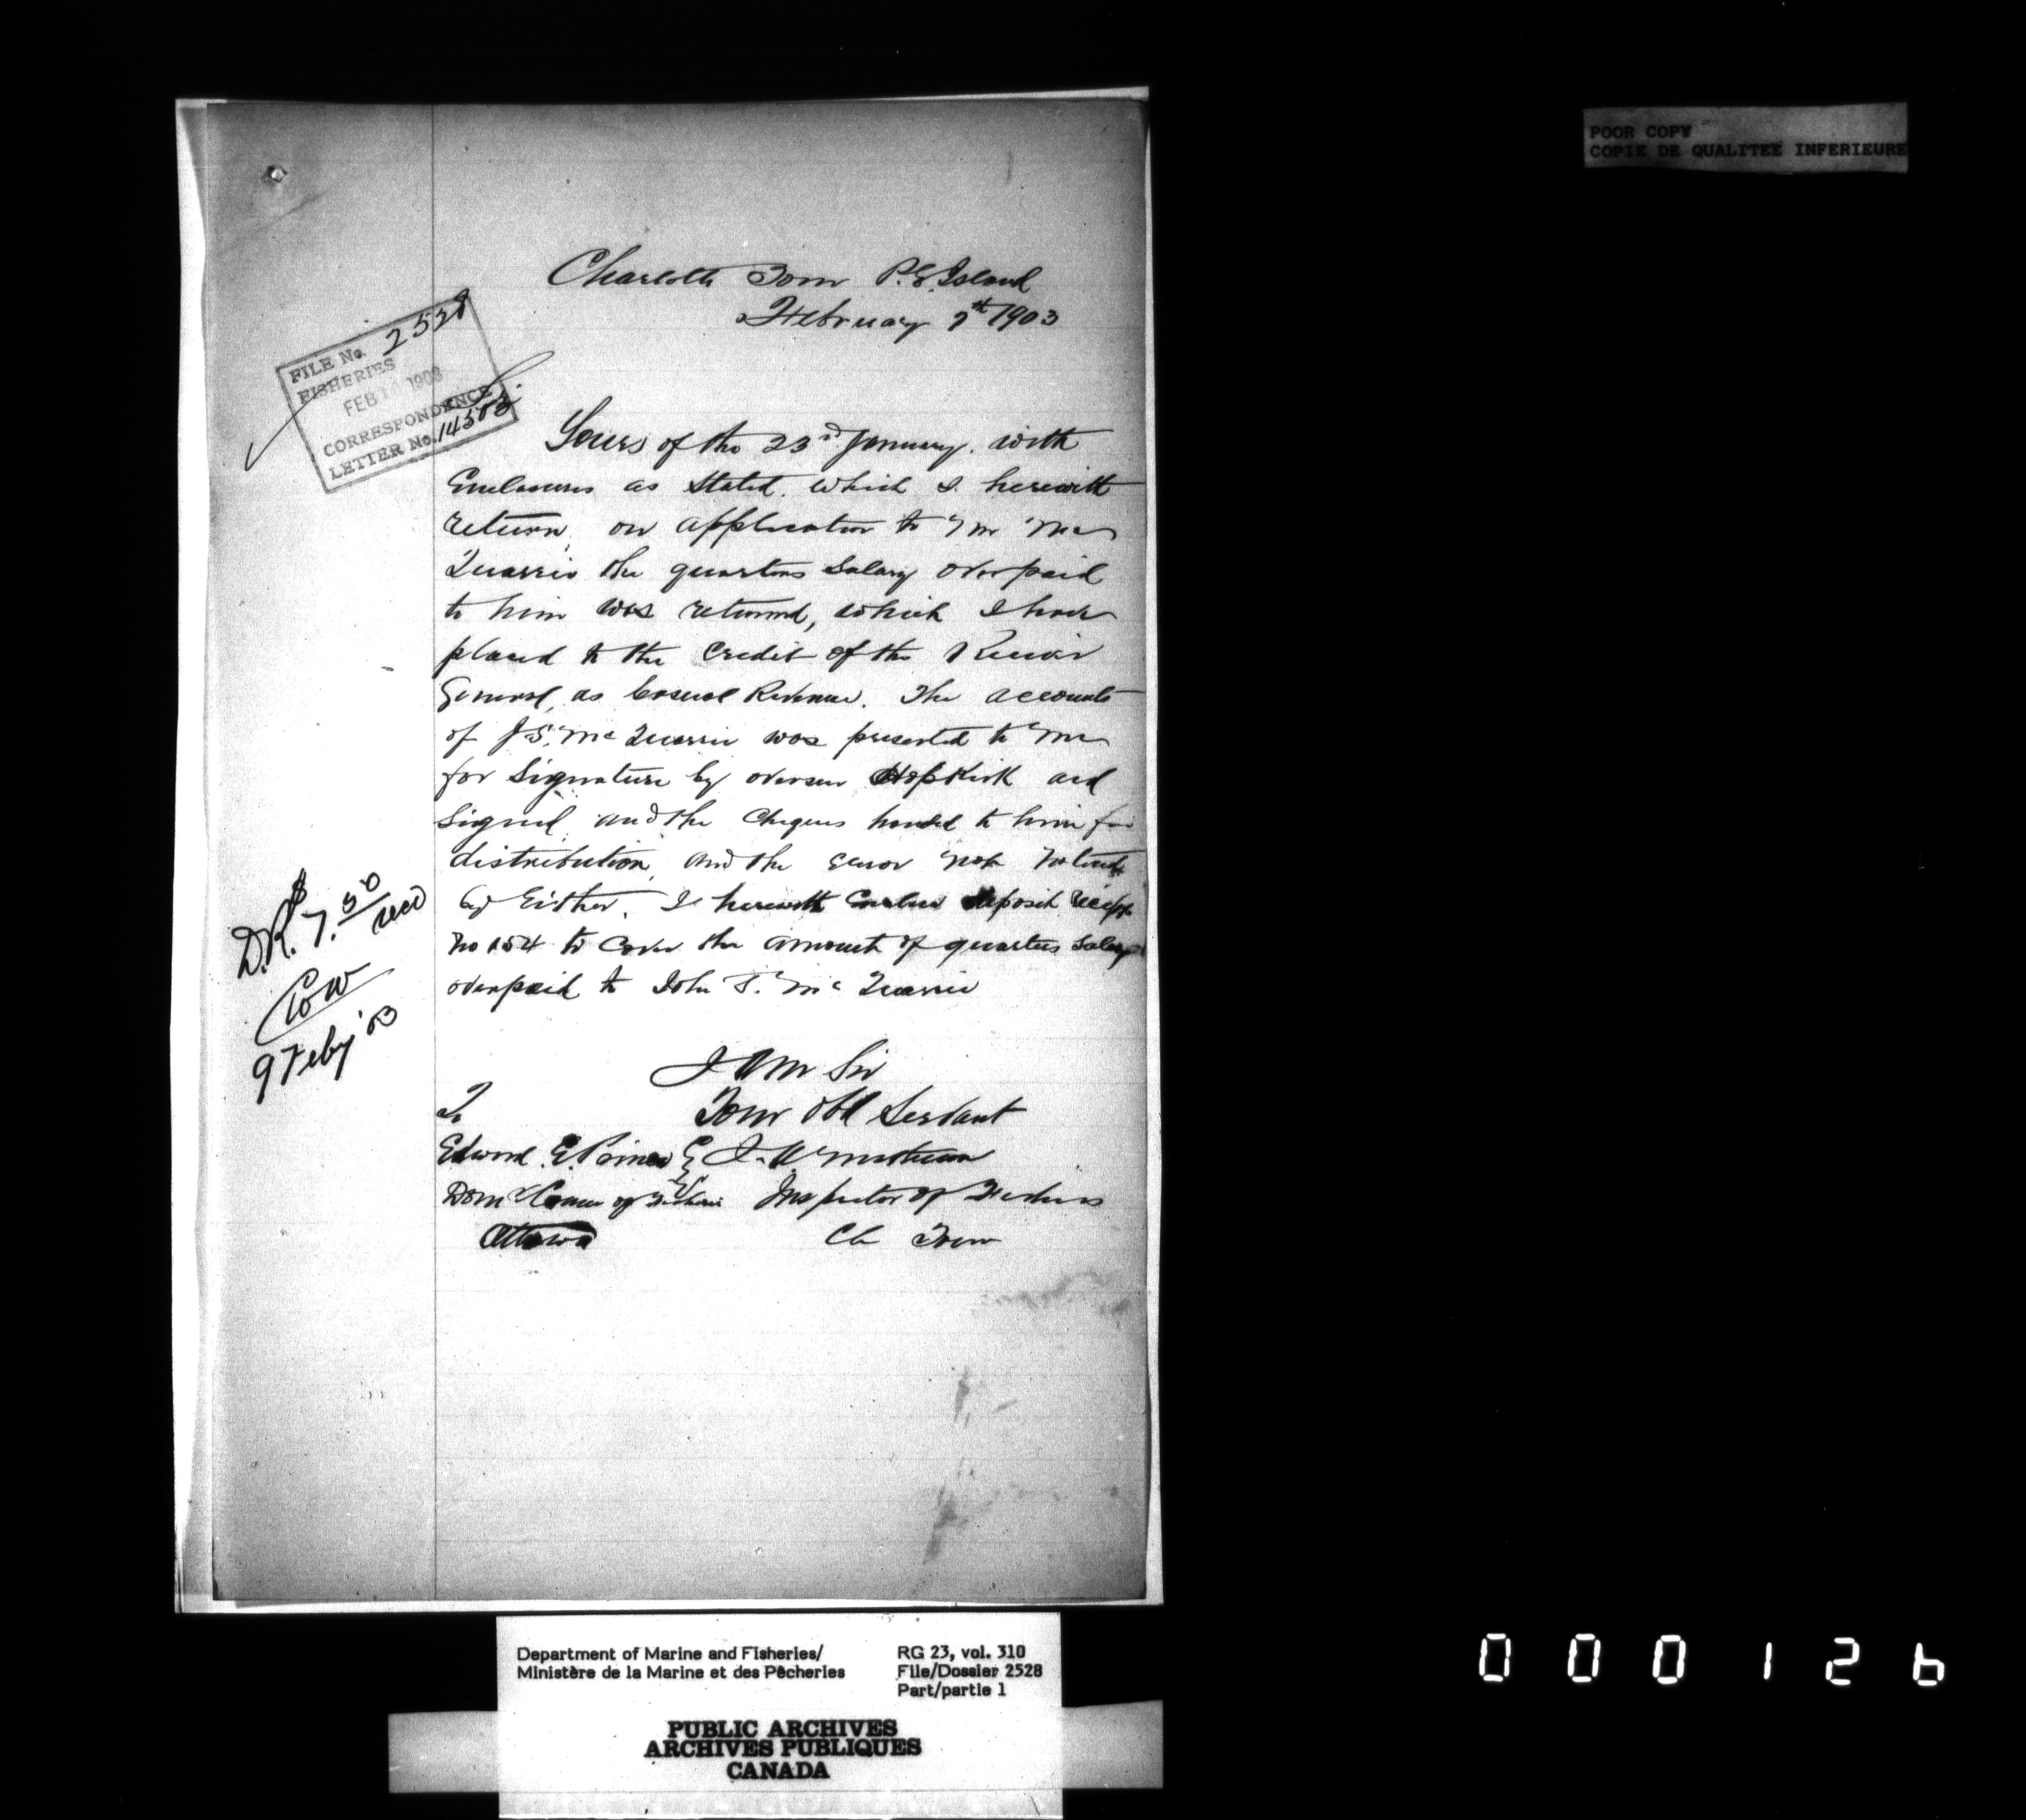 POOR COPY
COPIE DE QUALITEE INFERIEURE
Charlotte Town P.E. Island
February 7th 1903
FILE No. 2528
FISHERIES
FEB 10 1903
CORRESPONDENCE
LETTER No. 14503
Yours of the 23rd January. with
Enclosures as Stated. which I herewith
return, on application to Mr Mc
Quarrie the quarters Salary overpaid
to him was returned, which I have
placed to the Credit of the Receiver
General, as Casual Revenue. The accounts
of J.S. Mc Quarrie was presented to me
for Signature by overseer Hopkirk and
Signed, and the Cheques handed to him for
distribution, and the error not noticed
by Either. I herewith Enclose deposit receipt
No 154 to Cover the amount of quarters Salary
overpaid to John S. Mc Quarrie
D.R. $7.50
recd
COW
9 Feby '03
I Am Sir
Your Obt Servant
To
Edward E. Prince Esq J. A. Matheson
Domn Commr of Fisheries Inspector of Fisheries
Ottawa Ch Town
Department of Marine and Fisheries/
Ministère de la Marine et des Pêcheries
RG 23, vol. 310
File/Dossier 2528
Part/partie 1
PUBLIC ARCHIVES
ARCHIVES PUBLIQUES
CANADA
000126